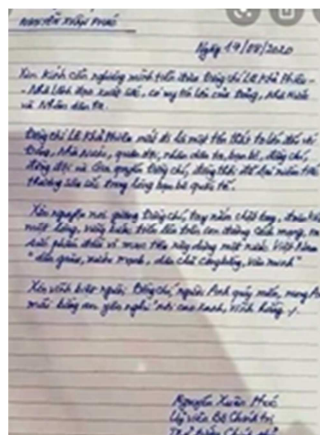 NGUYỄN XUÂN PHÚC
Ngày 14/08/2020
Xin kính cẩn nghiêng mình tiễn đưa Đồng chí Lê Khả Phiêu -
- Nhà lãnh đạo xuất sắc, có uy tín lớn của Đảng, Nhà nước
và Nhân dân ta.
Đồng chí Lê Khả Phiêu mất đi là một tổn thất to lớn đối với
Đảng, Nhà nước, quân đội, nhân dân ta, bạn bè, đồng chí,
đồng đội và gia quyến Đồng chí, đồng thời để lại niềm tiếc
thương sâu sắc trong lòng bạn bè quốc tế.
Xin nguyện noi gương Đồng chí, tay nắm chặt tay, đoàn kết
một lòng, vững bước tiến lên trên con đường cách mạng,
phấn đấu vì mục tiêu xây dựng một nước Việt Nam
"dân giàu, nước mạnh, dân chủ, công bằng, văn minh"
Xin vĩnh biệt người Đồng chí, người Anh quý mến, mong Anh
mãi bằng an yên nghỉ nơi cao xanh, vĩnh hằng./.
Nguyễn Xuân Phúc
Uỷ viên Bộ Chính trị
Thủ tướng Chính phủ